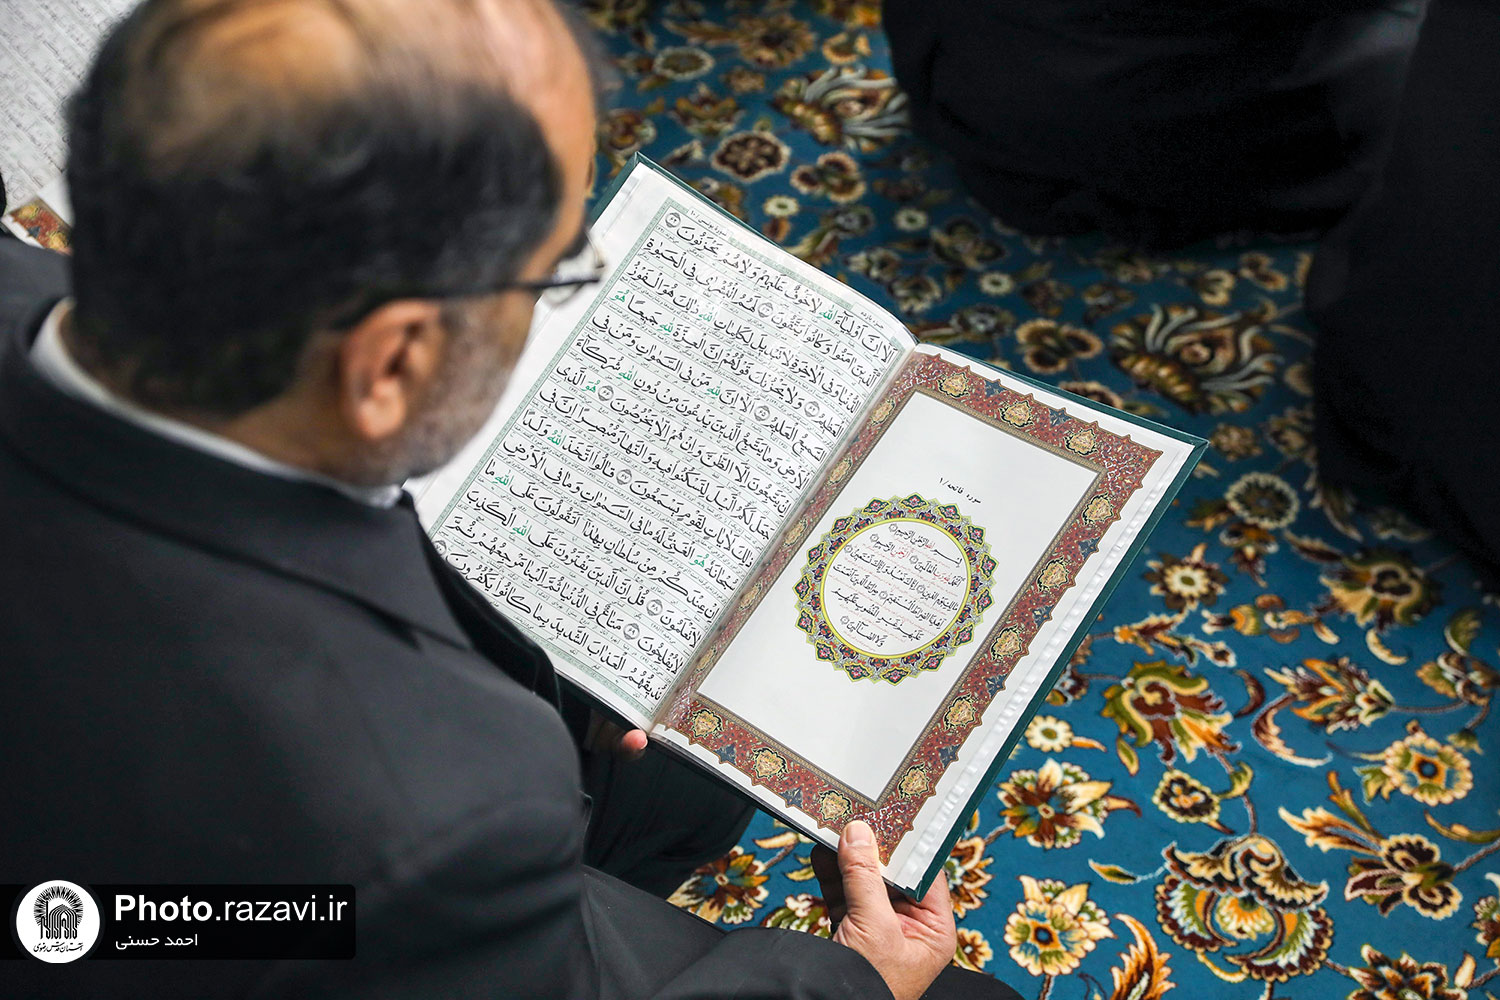 سوره فاتحه/١
بِسْمِ اللهِ الرَّحْمٰنِ الرَّحِيمِ ﴿١﴾
اَلْحَمْدُ لِلهِ رَبِّ الْعَالَمِينَ ﴿٢﴾ الرَّحْمٰنِ الرَّحِيمِ ﴿٣﴾
مَالِكِ يَوْمِ الدِّينِ ﴿٤﴾ اِيَّاكَ نَعْبُدُ وَاِيَّاكَ نَسْتَعِينُ ﴿٥﴾
اِهْدِنَا الصِّرَاطَ الْمُسْتَقِيمَ ﴿٦﴾ صِرَاطَ الَّذِينَ اَنْعَمْتَ
عَلَيْهِمْ غَيْرِ الْمَغْضُوبِ عَلَيْهِمْ
وَلَا الضَّالِّينَ ﴿٧﴾
سورة يونس / ١٠
اَلَا اِنَّ اَوْلِيَاءَ اللهِ لَا خَوْفٌ عَلَيْهِمْ وَلَا هُمْ يَحْزَنُونَ ﴿٦٢﴾
اَلَّذِينَ اٰمَنُوا وَكَانُوا يَتَّقُونَ ﴿٦٣﴾ لَهُمُ الْبُشْرٰى فِي الْحَيٰوةِ
الدُّنْيَا وَفِي الْاٰخِرَةِ لَا تَبْدِيلَ لِكَلِمَاتِ اللهِ ذٰلِكَ هُوَ الْفَوْزُ
الْعَظِيمُ ﴿٦٤﴾ وَلَا يَحْزُنْكَ قَوْلُهُمْ اِنَّ الْعِزَّةَ لِلهِ جَمِيعًا هُوَ
السَّمِيعُ الْعَلِيمُ ﴿٦٥﴾ اَلَا اِنَّ لِلهِ مَنْ فِي السَّمٰوَاتِ وَمَنْ فِي
الْاَرْضِ وَمَا يَتَّبِعُ الَّذِينَ يَدْعُونَ مِنْ دُونِ اللهِ شُرَكَاءَ
اِنْ يَتَّبِعُونَ اِلَّا الظَّنَّ وَاِنْ هُمْ اِلَّا يَخْرُصُونَ ﴿٦٦﴾ هُوَ الَّذِي
جَعَلَ لَكُمُ الَّيْلَ لِتَسْكُنُوا فِيهِ وَالنَّهَارَ مُبْصِرًا اِنَّ فِي
ذٰلِكَ لَاٰيَاتٍ لِقَوْمٍ يَسْمَعُونَ ﴿٦٧﴾ قَالُوا اتَّخَذَ اللهُ وَلَدًا
سُبْحَانَهُ هُوَ الْغَنِيُّ لَهُ مَا فِي السَّمٰوَاتِ وَمَا فِي الْاَرْضِ
اِنْ عِنْدَكُمْ مِنْ سُلْطَانٍ بِهٰذَا اَتَقُولُونَ عَلَى اللهِ مَا
لَا تَعْلَمُونَ ﴿٦٨﴾ قُلْ اِنَّ الَّذِينَ يَفْتَرُونَ عَلَى اللهِ الْكَذِبَ
لَا يُفْلِحُونَ ﴿٦٩﴾ مَتَاعٌ فِي الدُّنْيَا ثُمَّ اِلَيْنَا مَرْجِعُهُمْ ثُمَّ
نُذِيقُهُمُ الْعَذَابَ الشَّدِيدَ بِمَا كَانُوا يَكْفُرُونَ ﴿٧٠﴾
Photo.razavi.ir
احمد حسنی
آستان قدس رضوی